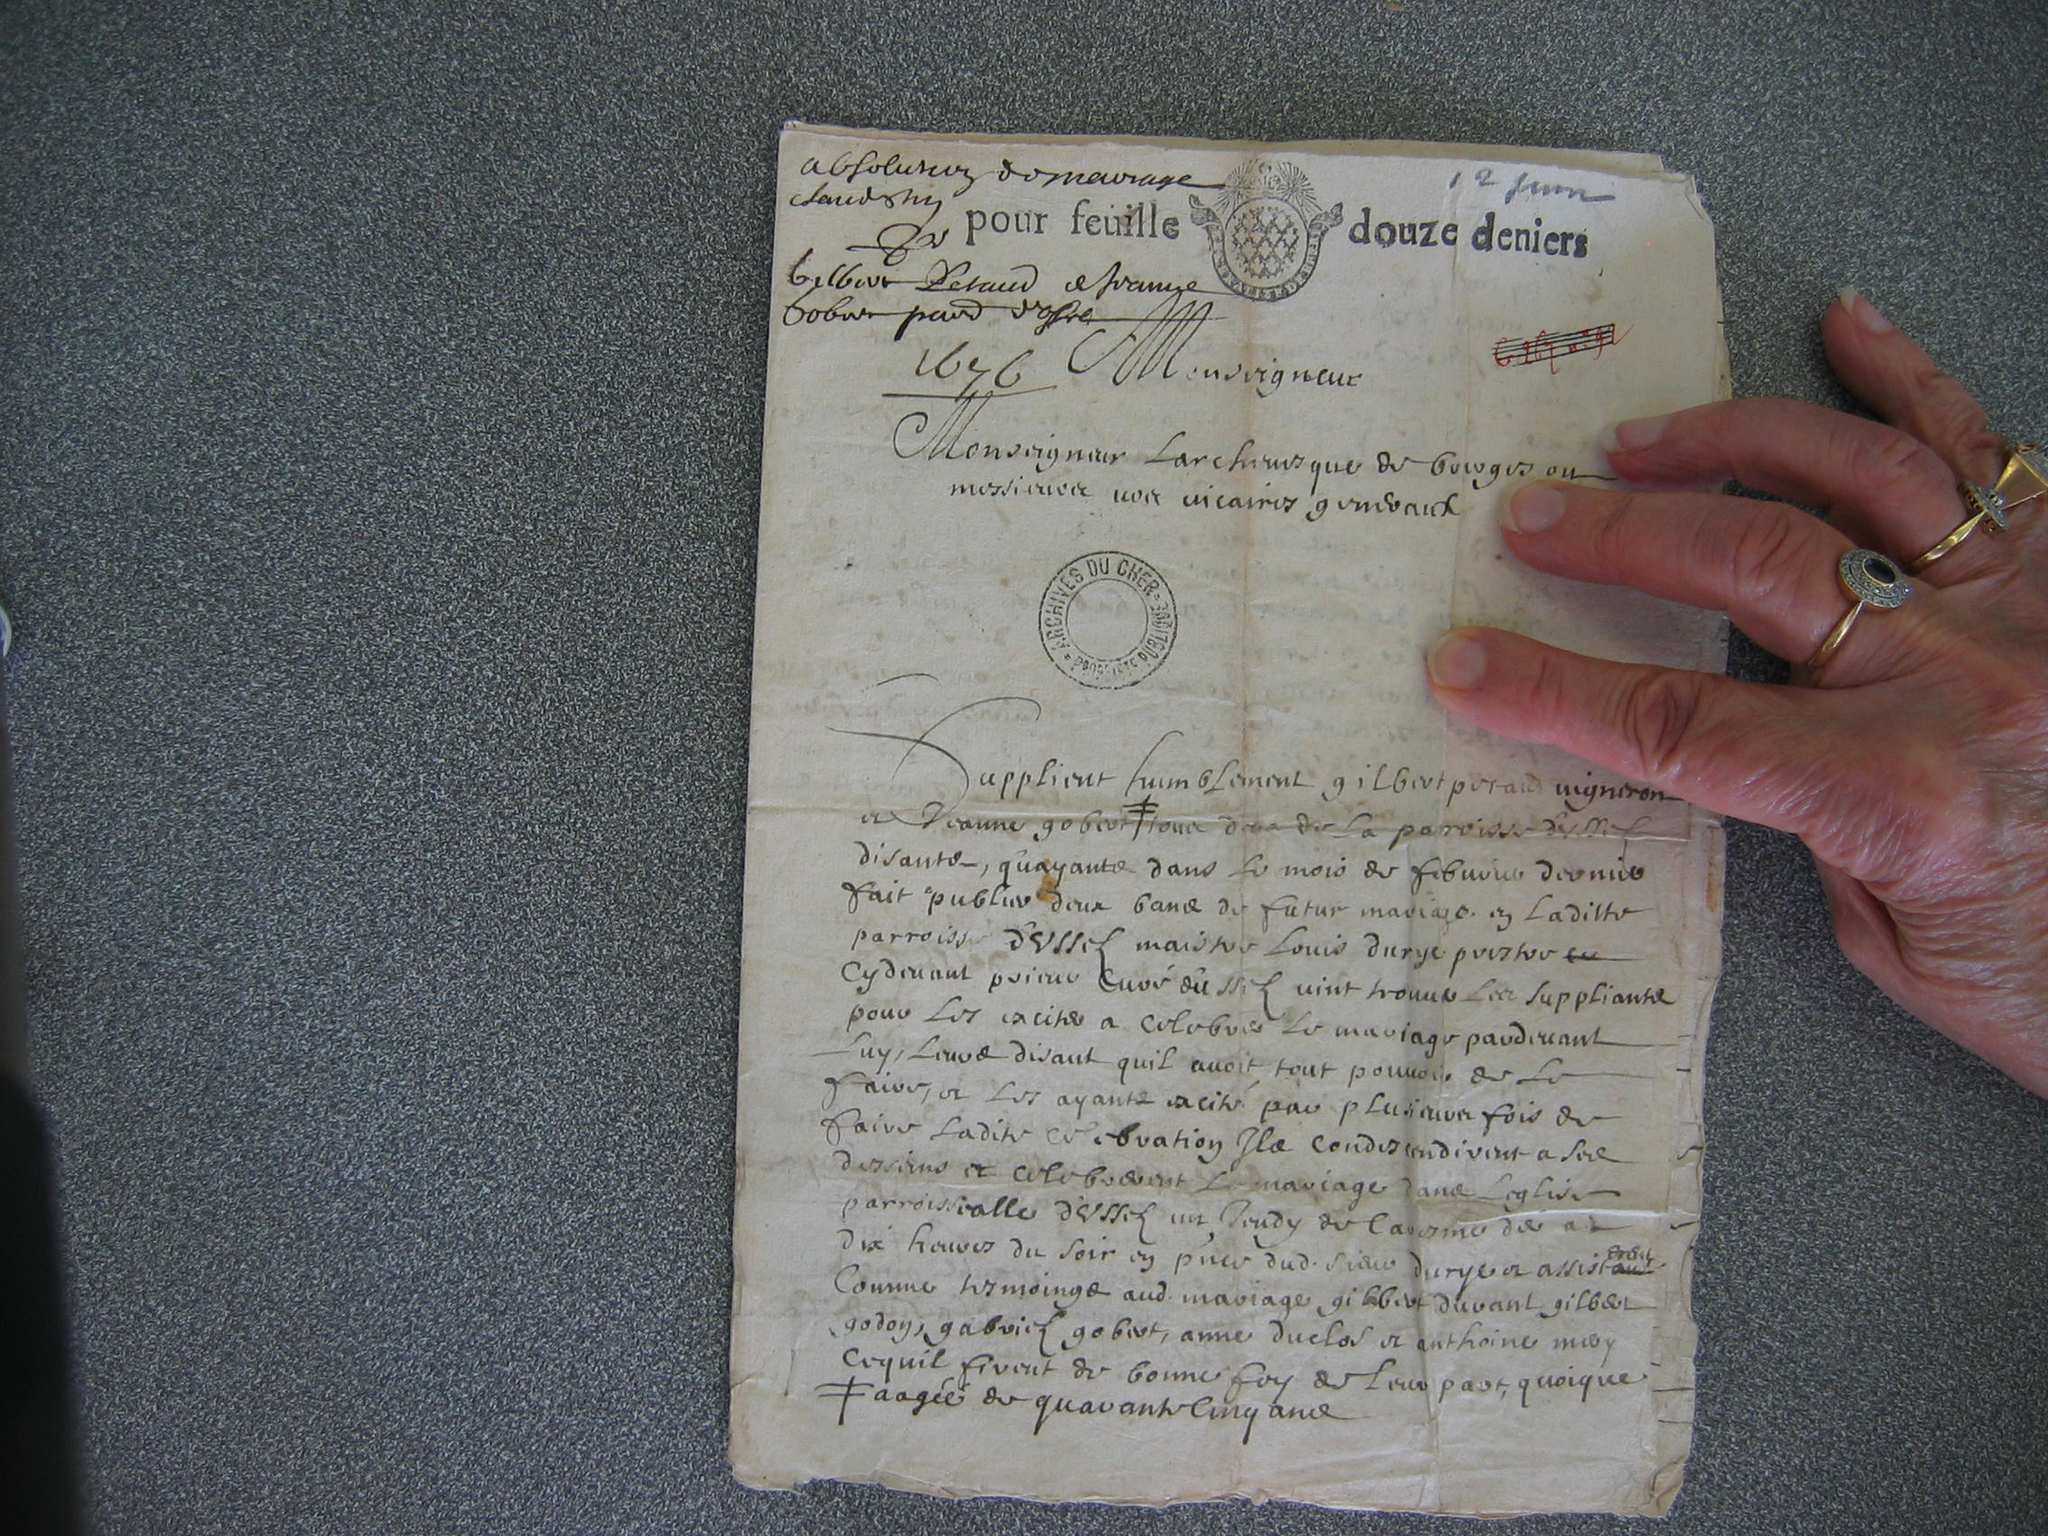 absolution de mariage
clandestin
12 Juin
pour feuille douze deniers
Gilbert Petaud et Jeanne
Gobert par d'Ussel
1676
Monseigneur
Monseigneur Larchevesque de bourges ou
messieurs vos vicaires generaux
ARCHIVES DU CHER
PROPRIÉTÉ PUBLIQUE
Supplient humblement gilbert petaud vigneron
et Jeanne gobert ‡ tous deux de la paroisse d'ussel
disants, qu'ayants dans le mois de febvrier dernier
fait publier deux bans de futur mariage en laditte
parroisse d'Ussel maistre Louis durye prestre
cydevant prieur Curé d'ussel vint trouver les suppliants
pour les exciter a celebrer le mariage pardevant
luy, leurs disant quil avoit tout pouvoir de le
faire, et les ayants excité par plusieurs fois de
faire ladite celebration Ils condescendirent a ses
desseins et celebrerent le mariage dans leglise
parroissialle d'Ussel un Jeudy de Caresme des
dix heures du soir en pnce dud. sieur durye et assist
comme tesmoings aud. mariage gilbert durant gilbert
godon, gabriel gobert, anne duclos et anthoine mery
cequil firent de bonne foy de leur part, quoique
‡ aagée de quarante Cinq ans